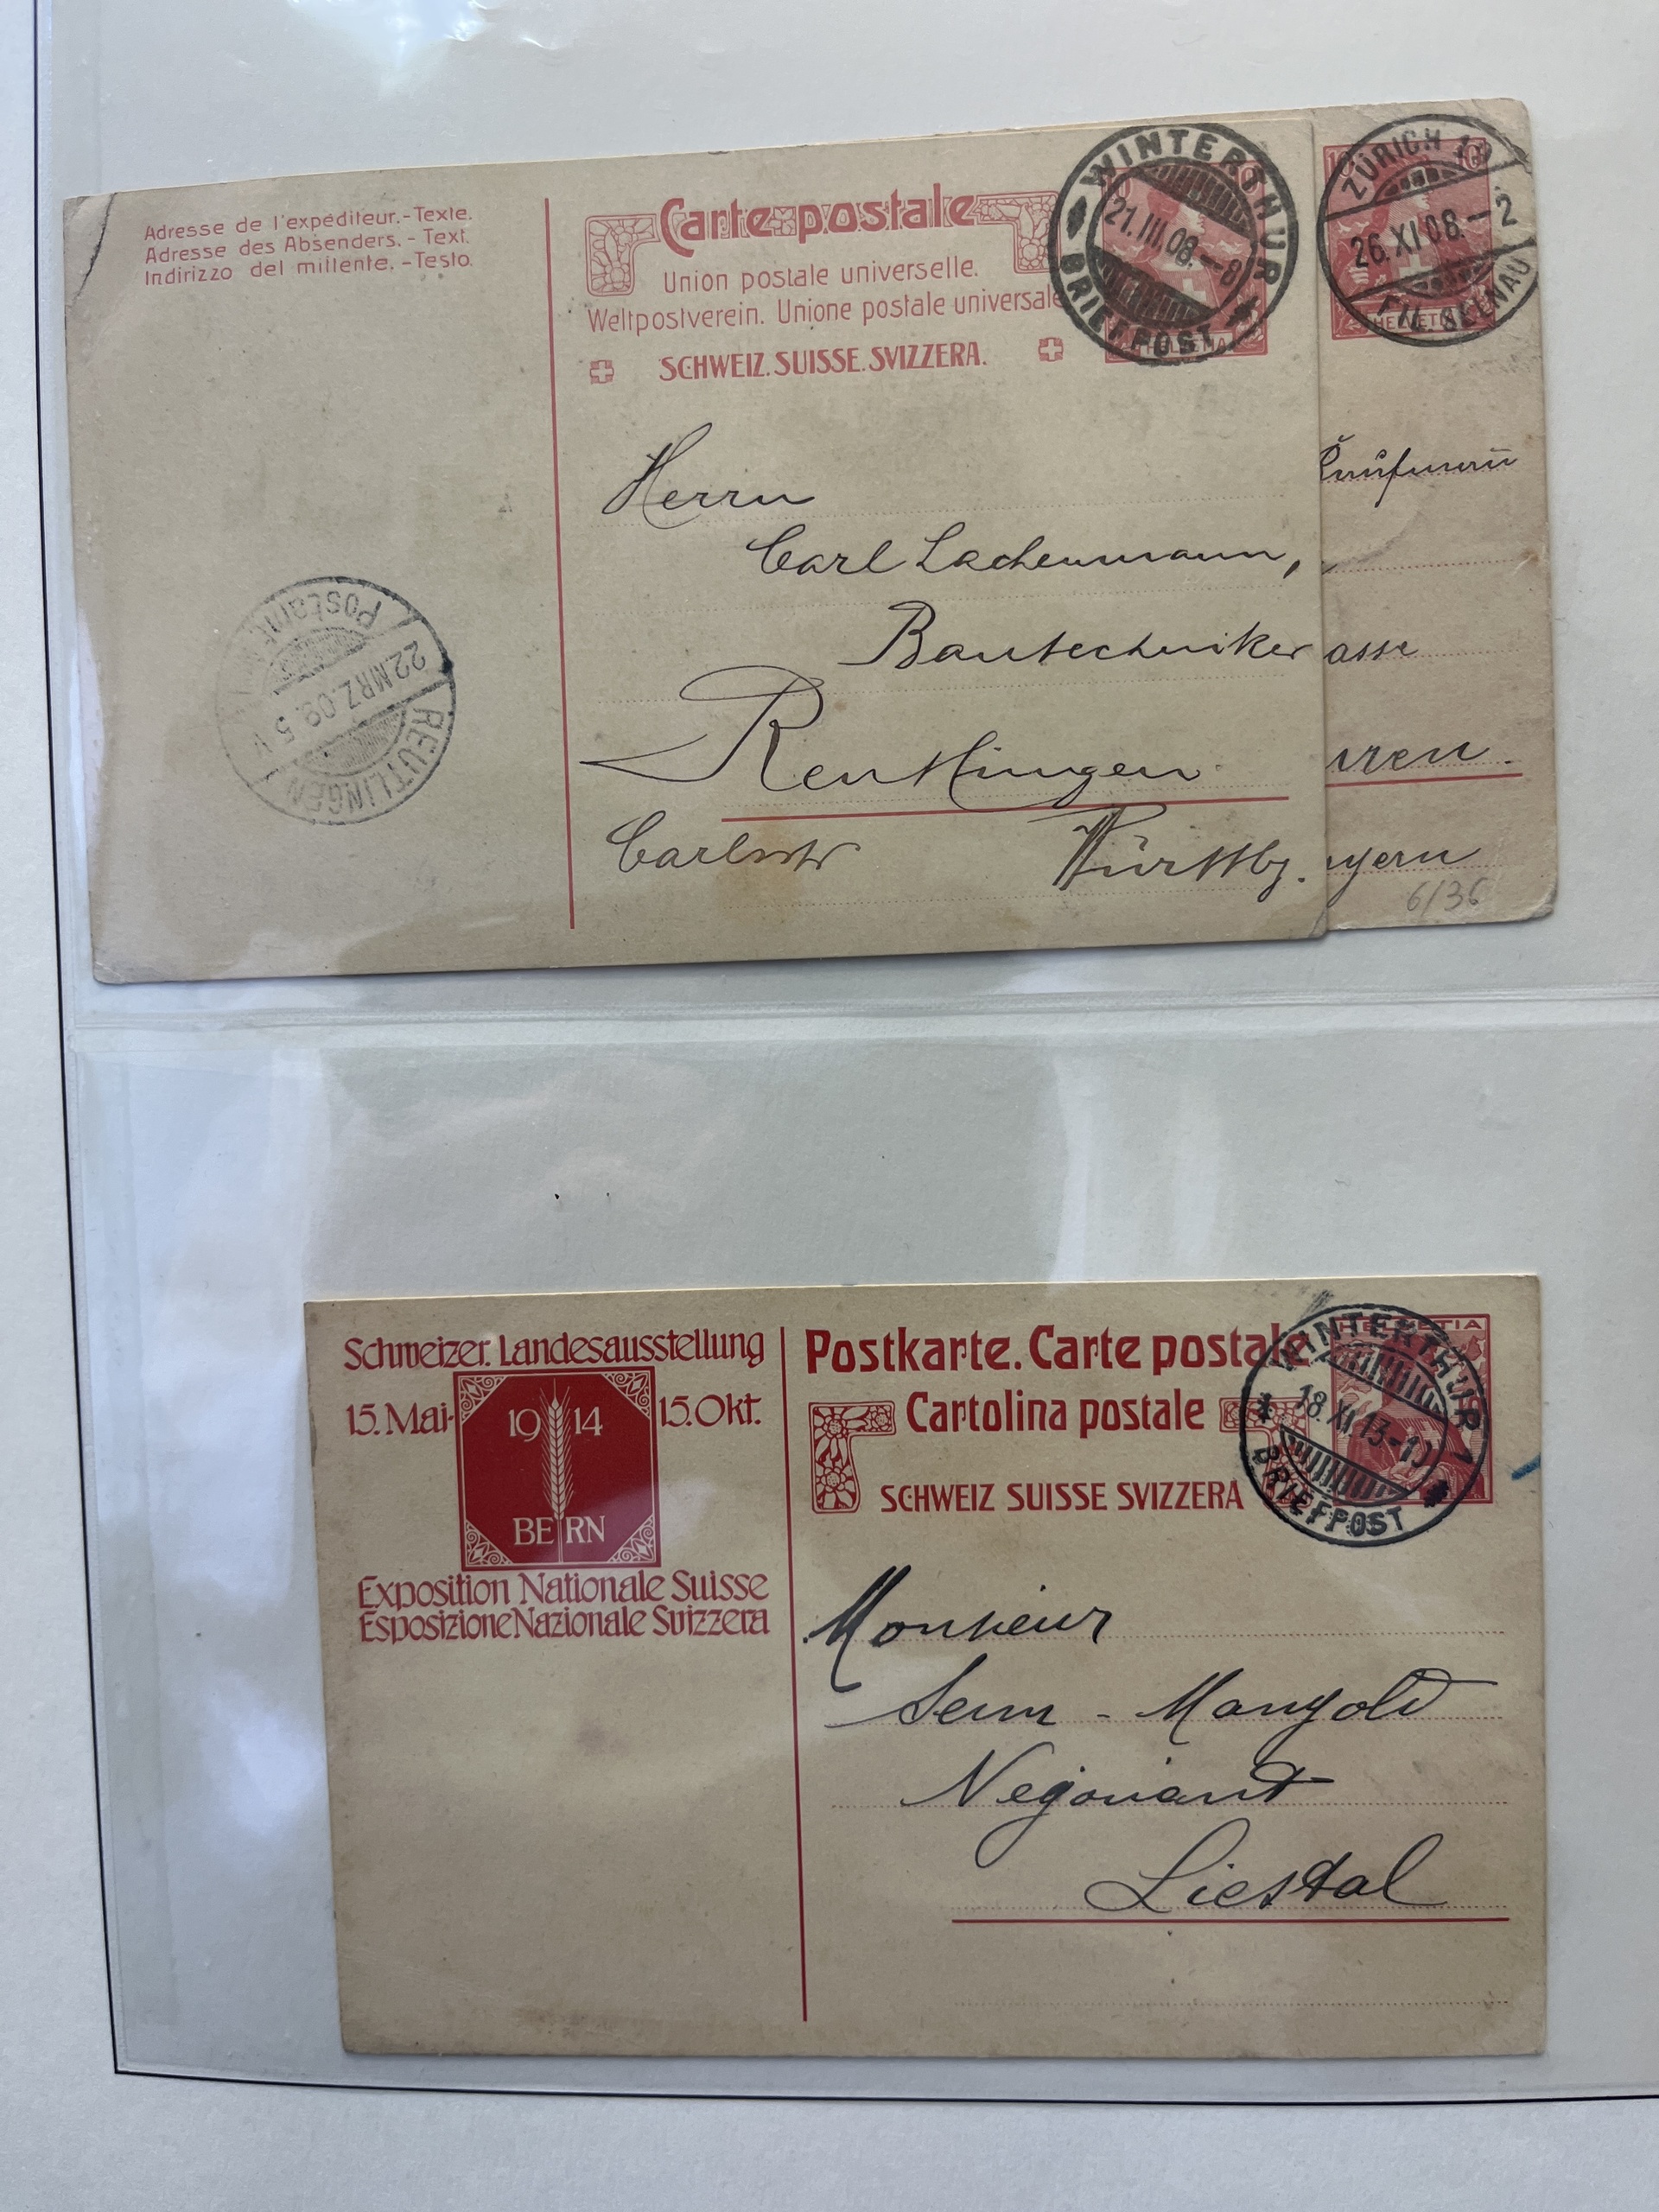 Adresse de l'expéditeur.-Texte.
Adresse des Absenders. - Text.
Indirizzo del mittente. -Testo.
Carte postale
Union postale universelle.
Weltpostverein. Unione postale universale
SCHWEIZ. SUISSE. SVIZZERA.
WINTERTHUR
21.III.08.-8
BRIEFPOST
ZÜRICH
26.XI.08.-2
FIL. SELNAU
HELVETIA
Herrn
Carl Lachenmann,
Bautechniker
Reutlingen
Carlsstr Württbg.
REUTLINGEN
22.MRZ.09. 5 V
Postamt
Kaufmann
asse
ren.
yern
6/36
Schweizer. Landesausstellung
15. Mai- 15. Okt.
19 14
BERN
Exposition Nationale Suisse
Esposizione Nazionale Svizzera
Postkarte. Carte postale
Cartolina postale
SCHWEIZ SUISSE SVIZZERA
HELVETIA
WINTERTHUR 1
18.XI.13-
BRIEFPOST
Monsieur
Senn - Mangold
Negociant
Liestal